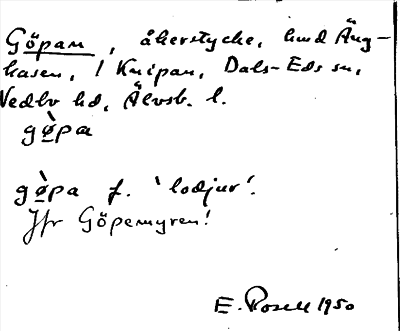 Göpan, åkerstycke, hmd Äng-
hasen, / Knipan, Dals-Eds sn,
Vedbo hd, Älvsb. l.
gø̀pa
gø̀pa f. 'lodjur'.
Jfr Göpemyren!
E. Rosell 1950